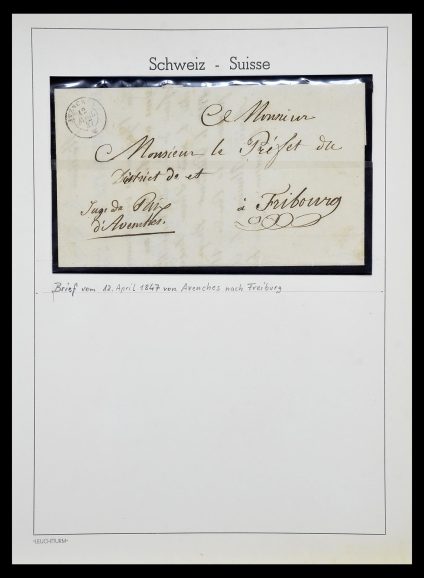 Schweiz - Suisse
AVENCHES
12
47
A Monsieur
Monsieur le Préfet du
District de et
à Fribourg
Juge de Paix
d'Avenches.
Brief vom 12. April 1847 von Avenches nach Freiburg
LEUCHTTURM